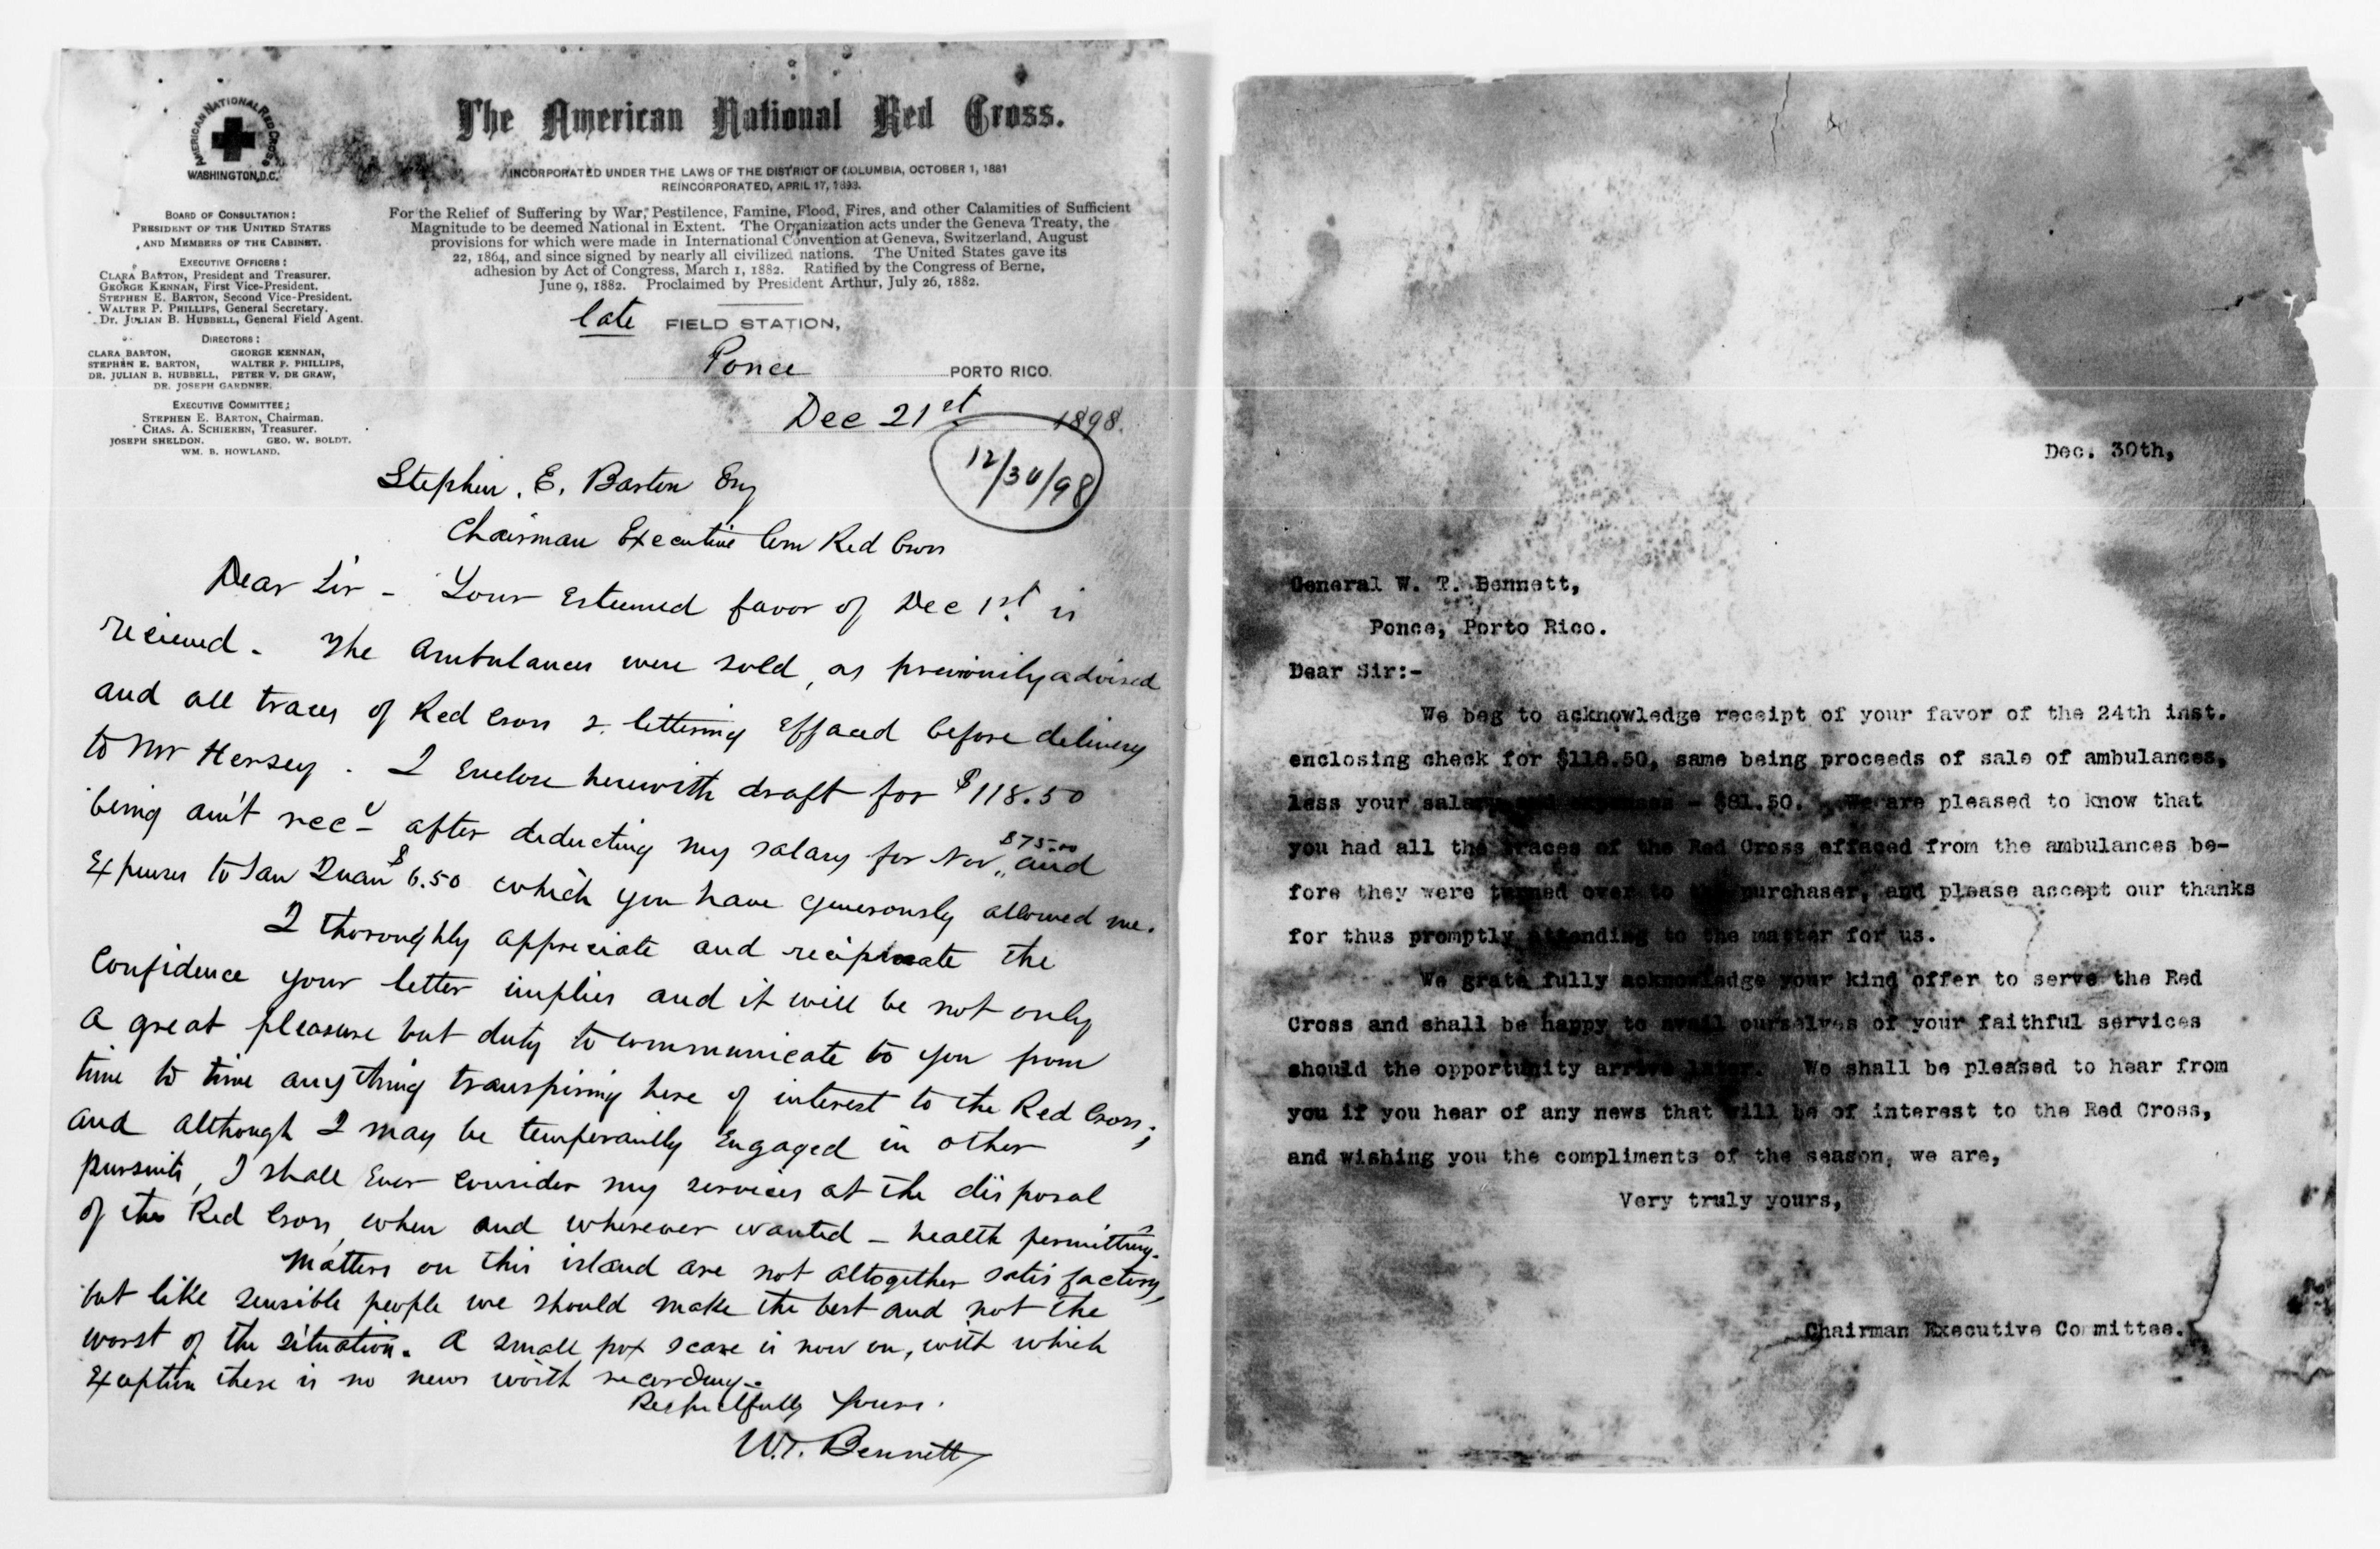 AMERICAN NATIONAL RED CROSS
WASHINGTON, D.C.
The American National Red Cross.
INCORPORATED UNDER THE LAWS OF THE DISTRICT OF COLUMBIA, OCTOBER 1, 1881
REINCORPORATED, APRIL 17, 1893.
For the Relief of Suffering by War, Pestilence, Famine, Flood, Fires, and other Calamities of Sufficient
Magnitude to be deemed National in Extent. The Organization acts under the Geneva Treaty, the
provisions for which were made in International Convention at Geneva, Switzerland, August
22, 1864, and since signed by nearly all civilized nations. The United States gave its
adhesion by Act of Congress, March 1, 1882. Ratified by the Congress of Berne,
June 9, 1882. Proclaimed by President Arthur, July 26, 1882.
BOARD OF CONSULTATION:
PRESIDENT OF THE UNITED STATES
AND MEMBERS OF THE CABINET.
EXECUTIVE OFFICERS:
CLARA BARTON, President and Treasurer.
GEORGE KENNAN, First Vice-President.
STEPHEN E. BARTON, Second Vice-President.
WALTER P. PHILLIPS, General Secretary.
DR. JULIAN B. HUBBELL, General Field Agent.
DIRECTORS:
CLARA BARTON, GEORGE KENNAN,
STEPHEN E. BARTON, WALTER P. PHILLIPS,
DR. JULIAN B. HUBBELL, PETER V. DE GRAW,
DR. JOSEPH GARDNER.
EXECUTIVE COMMITTEE:
STEPHEN E. BARTON, Chairman.
CHAS. A. SCHIEREN, Treasurer.
JOSEPH SHELDON. GEO. W. BOLDT.
WM. B. HOWLAND.
late FIELD STATION,
Ponce PORTO RICO.
Dec 21st 1898.
12/30/98
Stephen. E. Barton Esq
Chairman Executive Com Red Cross
Dear Sir - Your Esteemed favor of Dec 1st. is
recieved. The Ambulances were sold, as previously advised
and all traces of Red Cross & lettering Effaced before delivery
to Mr Hersey. I Enclose herewith draft for $118.50
being am't rec'd after deducting my salary for Nov., $75.00 and
Expenses to San Juan $6.50 which you have generously allowed me.
I thoroughly appreciate and reciprocate the
Confidence your letter implies and it will be not only
a great pleasure but duty to communicate to you from
time to time anything transpiring here of interest to the Red Cross;
and although I may be temporarily Engaged in other
pursuits, I shall Ever Consider my services at the disposal
of the Red Cross, when and wherever wanted - health permitting.
Matters on this island are not altogether satisfactory,
but like sensible people we should make the best and not the
worst of the situation. A small pox scare is now on, with which
Exception there is no news worth recording.
Respectfully Yours.
W.T. Bennett
Dec. 30th,
General W. T. Bennett,
Ponce, Porto Rico.
Dear Sir:-
We beg to acknowledge receipt of your favor of the 24th inst.
enclosing check for $118.50, same being proceeds of sale of ambulances,
less your salary and expenses - $81.50. We are pleased to know that
you had all the traces of the Red Cross effaced from the ambulances be-
fore they were turned over to the purchaser, and please accept our thanks
for thus promptly attending to the matter for us.
We grate fully acknowledge your kind offer to serve the Red
Cross and shall be happy to avail ourselves of your faithful services
should the opportunity arrive later. We shall be pleased to hear from
you if you hear of any news that will be of interest to the Red Cross,
and wishing you the compliments of the season, we are,
Very truly yours,
Chairman Executive Committee.